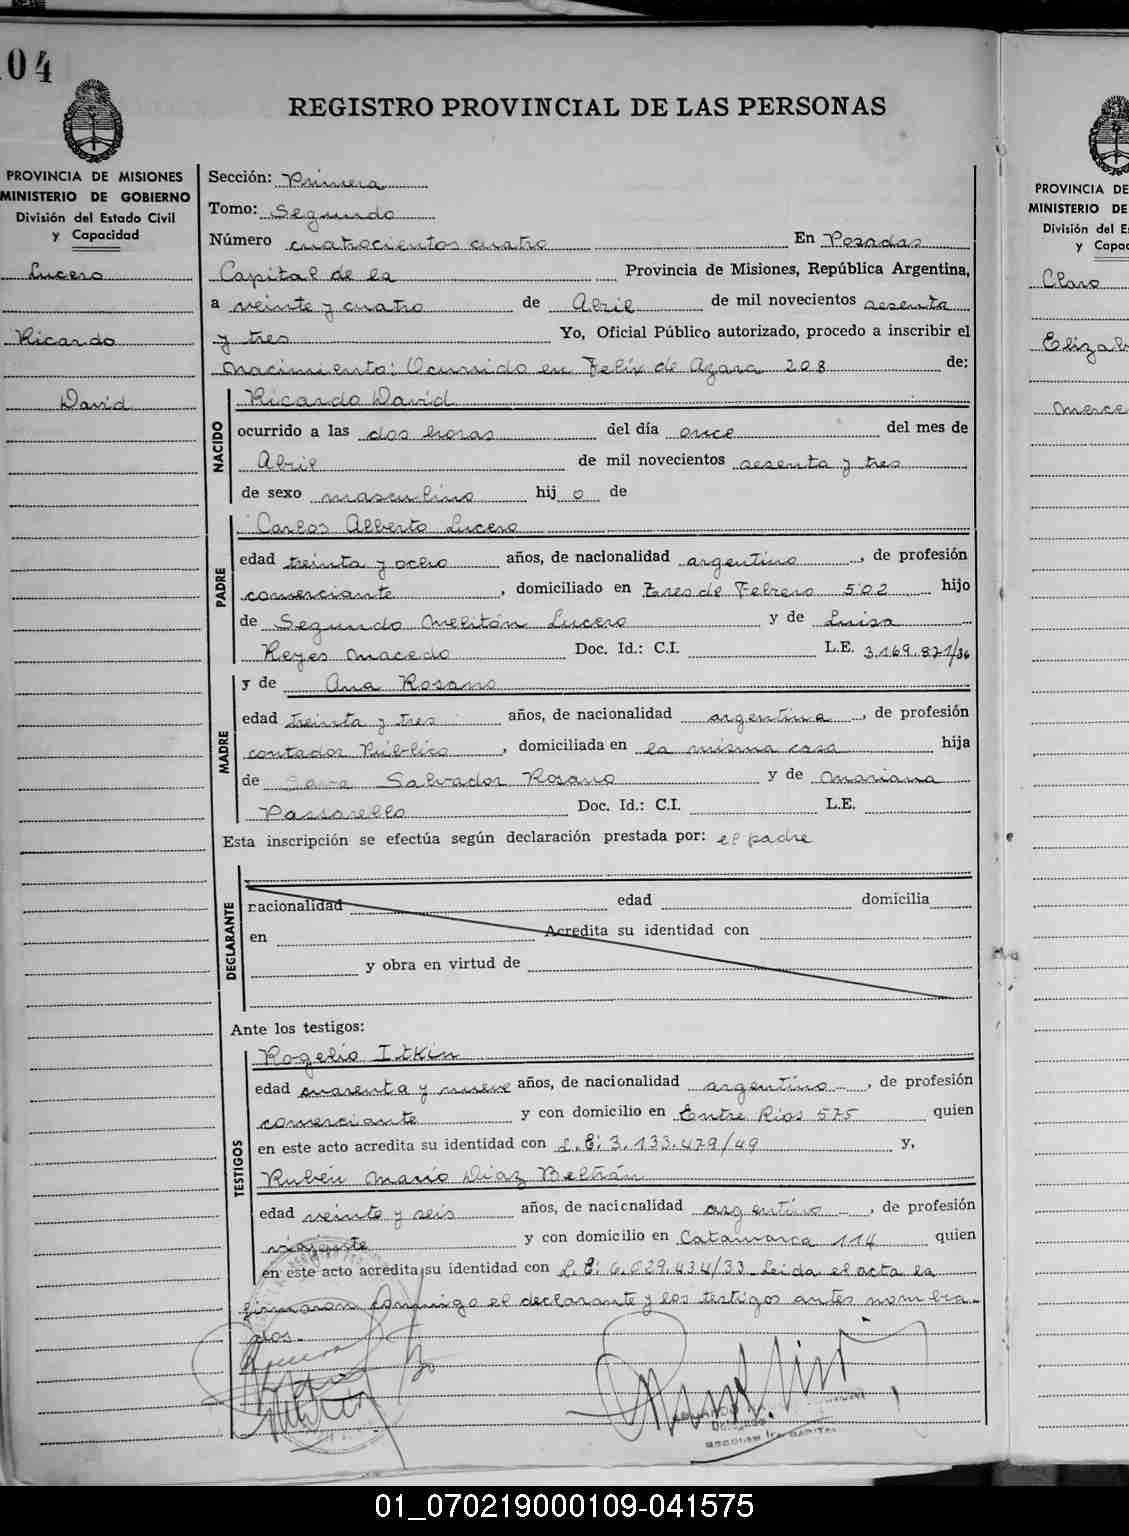 04
REGISTRO PROVINCIAL DE LAS PERSONAS
PROVINCIA DE MISIONES
MINISTERIO DE GOBIERNO
División del Estado Civil
y Capacidad
Lucero
Ricardo
David
Sección: Primera
Tomo: Segundo
Número cuatrocientos cuatro En Posadas
Capital de la Provincia de Misiones, República Argentina,
a veinte y cuatro de Abril de mil novecientos sesenta
y tres Yo, Oficial Público autorizado, procedo a inscribir el
nacimiento: Ocurrido en Felix de Azara 208 de:
NACIDO
Ricardo David
ocurrido a las dos horas del día once del mes de
Abril de mil novecientos sesenta y tres
de sexo masculino hijo de
PADRE
Carlos Alberto Lucero
edad treinta y ocho años, de nacionalidad argentino, de profesión
comerciante, domiciliado en Tres de Febrero 502 hijo
de Segundo Melitón Lucero y de Luisa
Reyes Macedo Doc. Id.: C.I. L.E. 3.169.821/36
MADRE
y de Ana Rosano
edad treinta y tres años, de nacionalidad argentina, de profesión
contador Público, domiciliada en la misma casa hija
de Salvador Rosano y de Mariana
Passarello Doc. Id.: C.I. L.E.
Esta inscripción se efectúa según declaración prestada por: el padre
DECLARANTE
nacionalidad edad domicilia
en Acredita su identidad con
y obra en virtud de
Ante los testigos:
TESTIGOS
Rogelio Itkin
edad cuarenta y nueve años, de nacionalidad argentino, de profesión
comerciante y con domicilio en Entre Rios 575 quien
en este acto acredita su identidad con L.E: 3.133.479/49 y,
Rubén Mario Diaz Beltrán
edad veinte y seis años, de nacionalidad argentino, de profesión
viajante y con domicilio en Catamarca 114 quien
en este acto acredita su identidad con L.E: 6.029.434/33. Leida el acta la
firmaron conmigo el declarante y los testigos antes nombra-
dos.-
PROVINCIA DE
MINISTERIO DE
División del Es
y Capac
Claro
Elizab
Merce
01_070219000109-041575